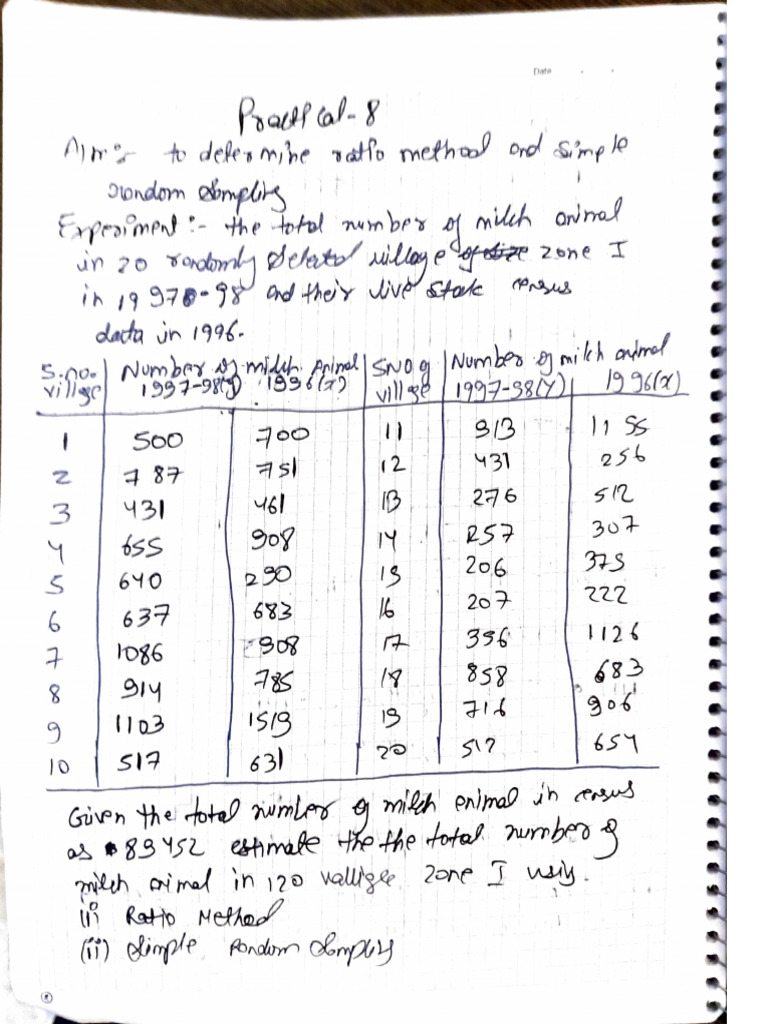 Date
Practical-8
Aim:- to determine ratio method and simple
random sampling
Experiment:- the total number of milch animal
in 20 randomly selected village zone I
in 1997-98 and their live stock census
data in 1996.
S.no. village | Number of milch animal 1997-98(y) 1996(x) | SNO of village | Number of milch animal 1997-98(Y) 1996(x)
1 500 700 11 913 1155
2 787 751 12 431 256
3 431 461 13 276 512
4 655 908 14 257 307
5 640 290 15 206 375
6 637 683 16 207 222
7 1086 908 17 396 1126
8 914 785 18 858 683
9 1103 1519 19 716 906
10 517 631 20 517 654
Given the total number of milch animal in census
as 89452 estimate the the total number of
milch animal in 120 zone I using.
(i) Ratio Method
(ii) Simple Random Sampling